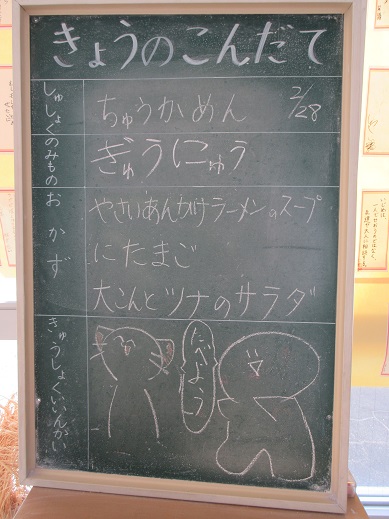 きょうのこんだて
しゅしょく
ちゅうかめん 2/28
のみもの
ぎゅうにゅう
おかず
やさいあんかけラーメンのスープ
にたまご
大こんとツナのサラダ
きゅうしょくいいんかい
たべよう